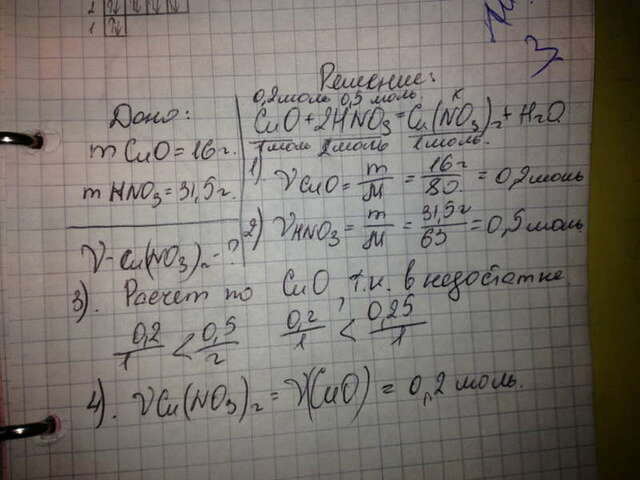 2
1
Решение:
Дано:
m CuO = 16 г.
m HNO₃ = 31,5 г.
ν - Cu(NO₃)₂ - ?
0,2 моль 0,5 моль. x
CuO + 2HNO₃ = Cu(NO₃)₂ + H₂O
1 моль 2 моль 1 моль.
1) ν CuO = m/M = 16 г/80 = 0,2 моль
2) ν HNO₃ = m/M = 31,5 г/63 = 0,5 моль
3). Расчет по CuO, т.к. в недостатке
0,2/1 < 0,5/2 0,2/1 < 0,25/1
4). ν Cu(NO₃)₂ = ν(CuO) = 0,2 моль.